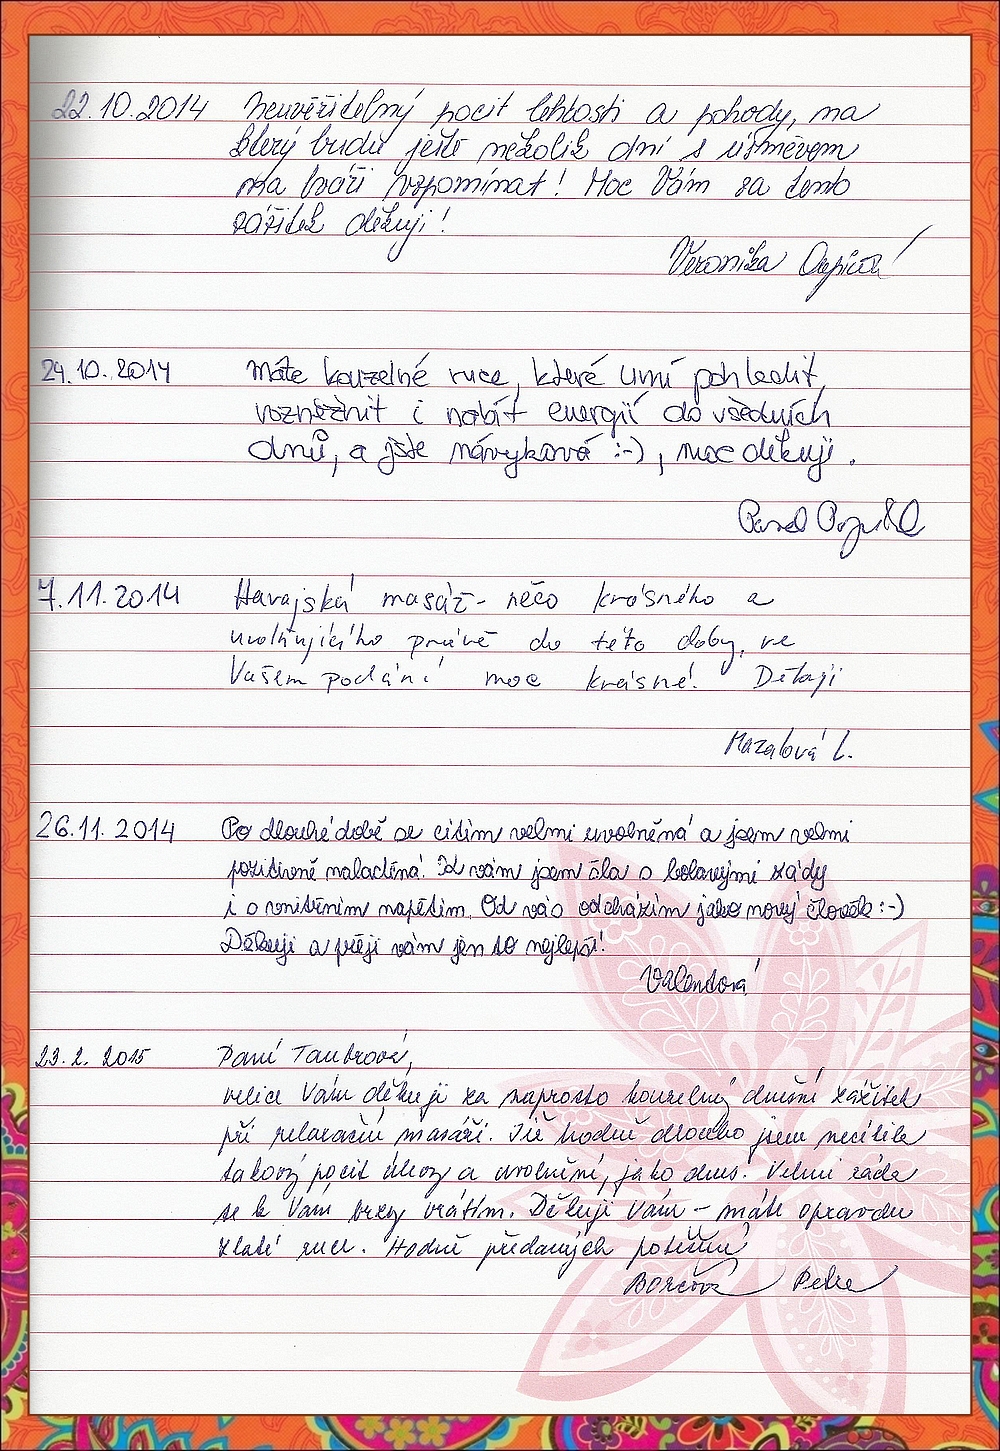 22.10.2014 Neuvěřitelný pocit lehkosti a pohody, na
který budu ještě několik dní s úsměvem
na tváři vzpomínat! Moc Vám za tento
zážitek děkuji!
Veronika
24.10.2014 Máte kouzelné ruce, které umí pohladit,
rozněžnit i nabít energií do všedních
dnů, a jste návyková :-), moc děkuji.
Pavel
7.11.2014 Havajská masáž - něco krásného a
uvolňujícího právě do této doby, ve
Vašem podání moc krásné! Děkuji
Mazalová L.
26.11.2014 Po dlouhé době se cítím velmi uvolněná a jsem velmi
pozitivně naladěná. K vám jsem šla s bolavými zády
i s vnitřním napětím. Od vás odcházím jako nový člověk :-)
Děkuji a přeji vám jen to nejlepší!
Valentová
23.2. 2015 Paní Taubrová,
velice Vám děkuji za naprosto kouzelný dnešní zážitek
při relaxační masáži. Již hodně dlouho jsem necítila
takový pocit úlevy a uvolnění, jako dnes. Velmi ráda
se k Vám brzy vrátím. Děkuji Vám - máte opravdu
zlaté ruce. Hodně předaných potěšení
Borčová Petra